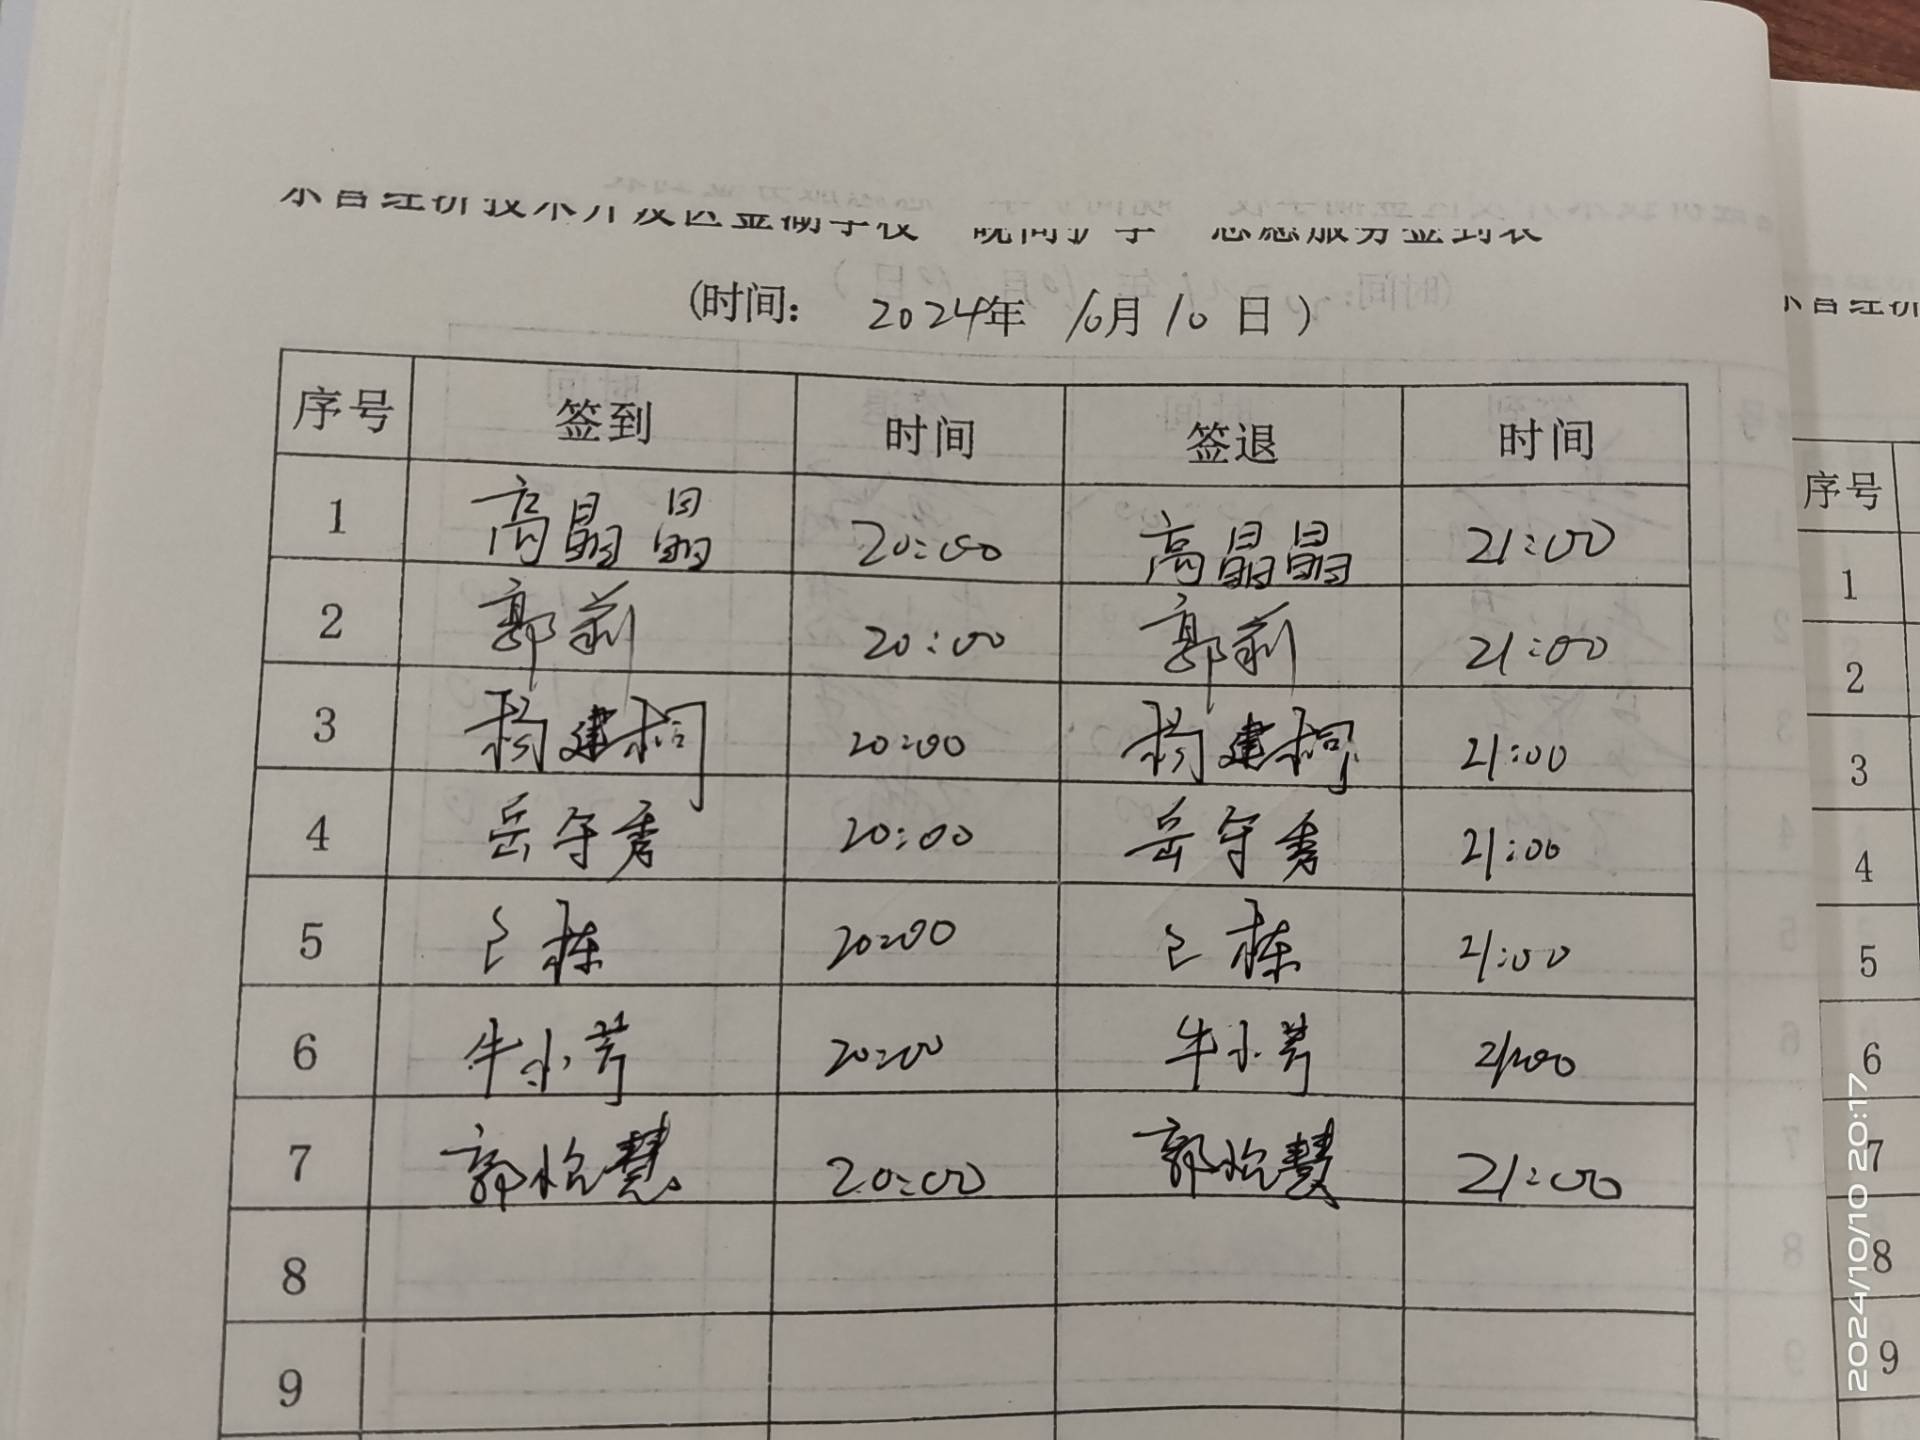 东营经济技术开发区金湖学校 晚间护学 志愿服务签到表
(时间: 2024年 10月10日)
序号 签到 时间 签退 时间
1 高晶晶 20:00 高晶晶 21:00
2 郭莉 20:00 郭莉 21:00
3 杨建桐 20:00 杨建桐 21:00
4 岳守秀 20:00 岳守秀 21:00
5 栋 20:00 栋 21:00
6 牛小芹 20:00 牛小芹 21:00
7 郭怡慧 20:00 郭怡慧 21:00
8
9
序号
1
2
3
4
5
6
7
8
9
2024/10/10 20:17